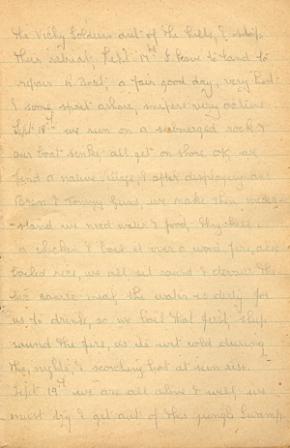 the Vichy Soldiers out of the hills, & stop
their retreat, Sept 17th I have to land to
repair a Boat, a fair good day, very hot
& some sport ashore, snipers very active
Sept 18th we run on a submerged rock &
our boat sinks all get on shore OK we
find a native village, & after displaying our
Bren & Tommy Guns, we make them under
-stand we need water & food. They
a chicken & roast it over a wood fire, and
boiled rice, we all sit round & devour the
meat, the water is dirty for
us to drink, so we boil that first, sleep
round the fire, as its wet cold during
the nights, & scorching hot at sun rise.
Sept 19th we are all alive & well we
must try & get out of this jungle swamp